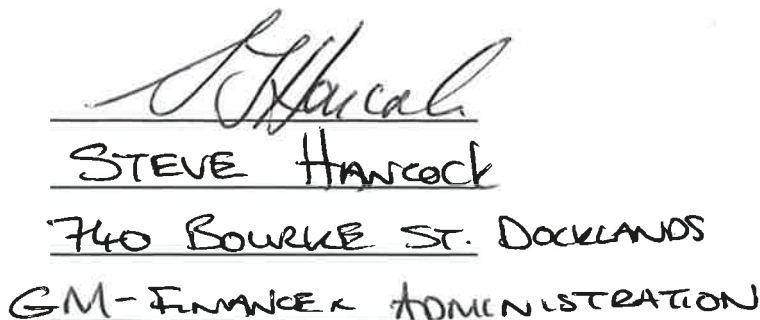 STEVE HANCOCK
740 BOURKE ST. DOCKLANDS
GM-FINANCE & ADMINISTRATION